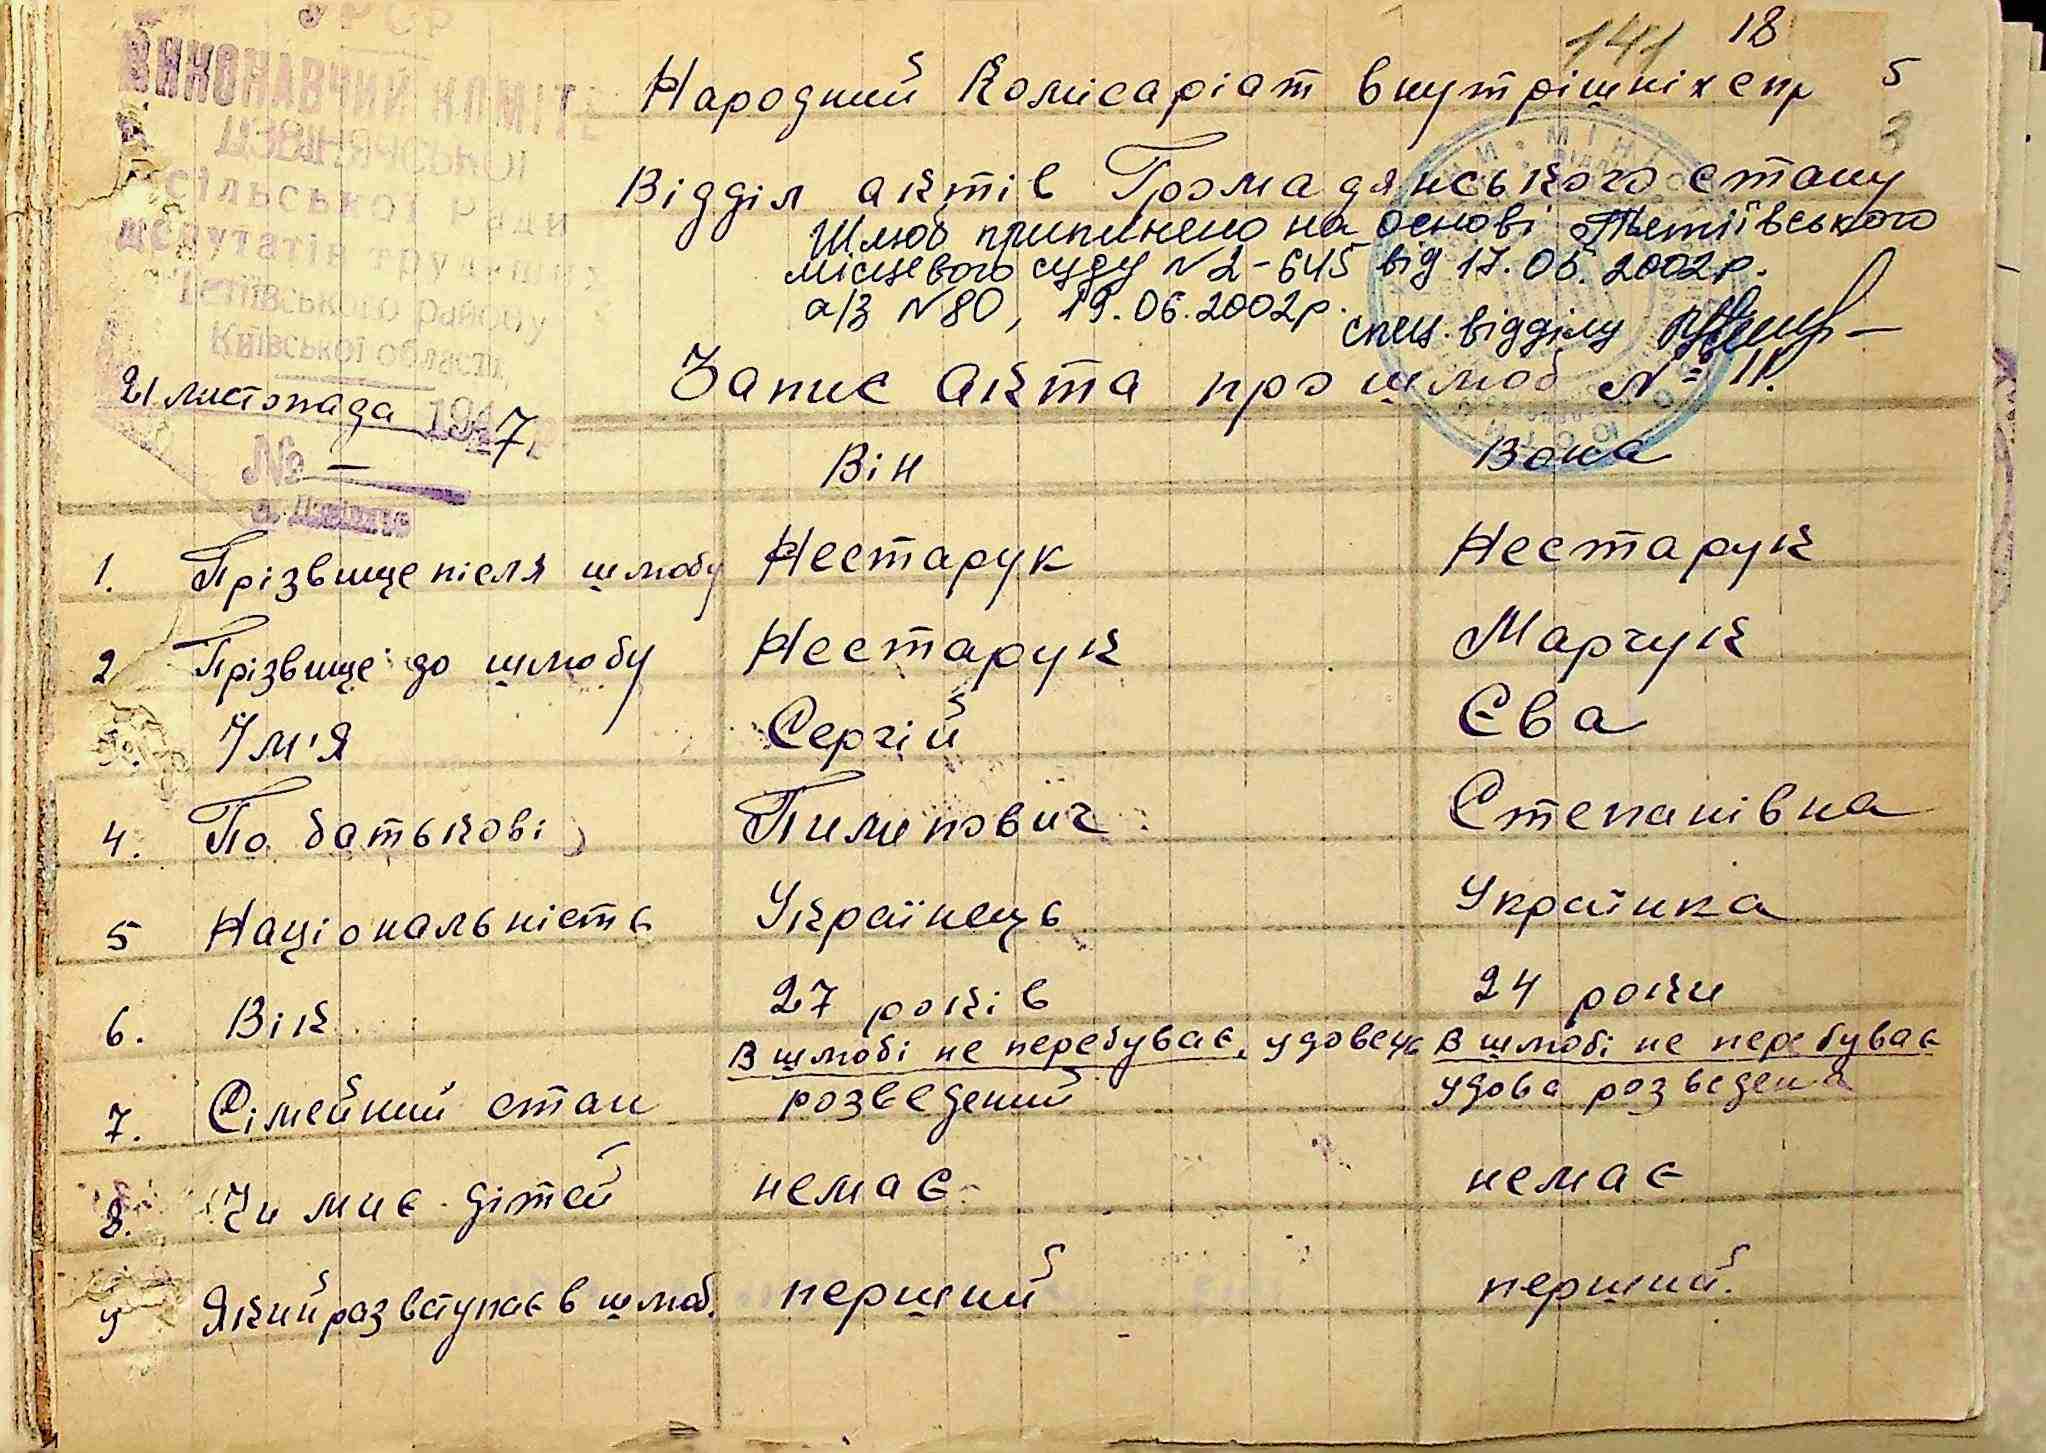 УРСР
ВИКОНАВЧИЙ КОМІТЕ
ДЗВІНЯЧСЬКОЇ
сільської Ради
депутатів трудящих
Тетіївського району
Київської області
21 листопада 1947.
№ —
с. Дзвіняче
141 18
Народний Комісаріат внутрішніх спр 5
3
Відділ актів Громадянського стану
Шлюб припинено на основі Тетіївського
місцевого суду №2-645 від 17.05.2002р.
а/з №80, 19.06.2002р.
спец. відділу
Запис акта про шлюб № 11.
Він Вона
1. Прізвище після шлюбу Нестарук Нестарук
2 Прізвище до шлюбу Нестарук Марчук
3. Ім'я Сергій Єва
4. По батькові Пилипович Степанівна
5 Національність Українець Українка
6. Вік 27 років 24 роки
В шлюбі не перебуває, удовець В шлюбі не перебуває
7. Сімейний стан розведений удова розведена
8. Чи має дітей немає немає
9 Який раз вступає в шлюб. перший перший.